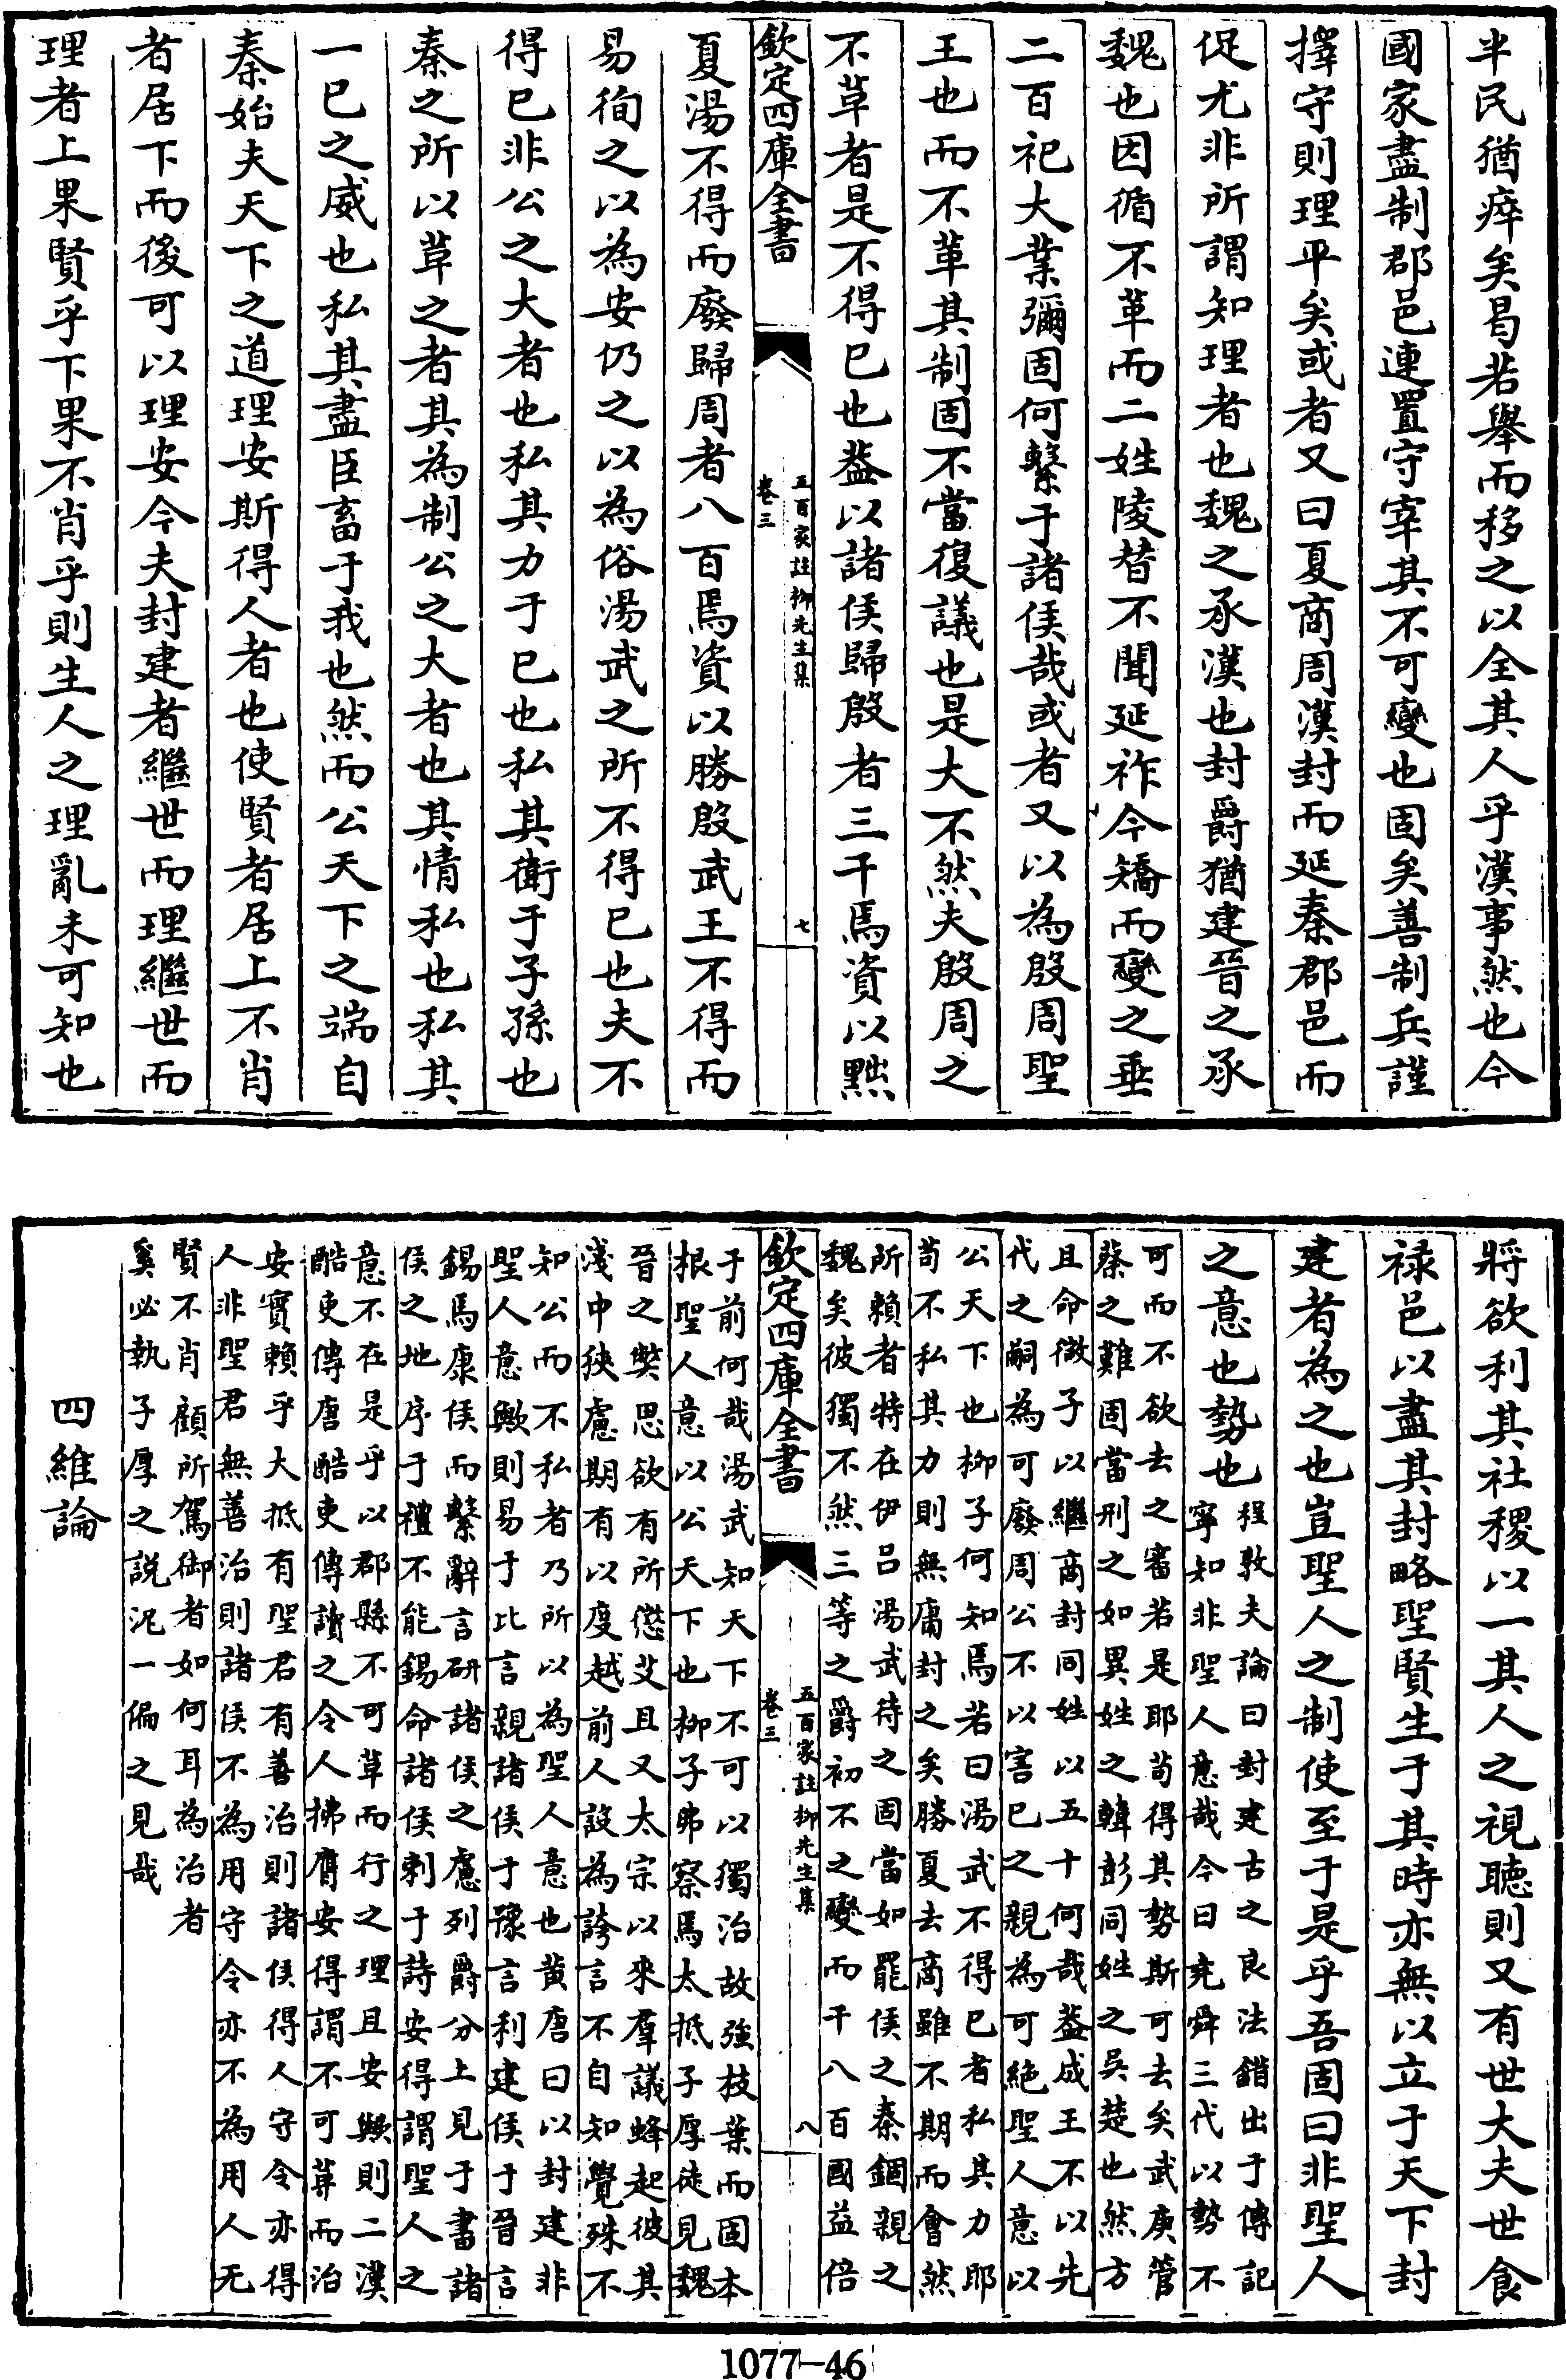 半民猶瘁矣曷若舉而移之以全其人乎漢事然也今
國家盡制郡邑連置守宰其不可變也固矣善制兵謹
擇守則理平矣或者又曰夏商周漢封而延秦郡邑而
促尤非所謂知理者也魏之承漢也封爵猶建晉之承
魏也因循不革而二姓陵替不聞延祚今矯而變之垂
二百祀大業彌固何繫于諸侯哉或者又以為殷周聖
王也而不革其制固不當復議也是大不然夫殷周之
不革者是不得已也蓋以諸侯歸殷者三千焉資以黜
欽定四庫全書
五百家註柳先生集
卷三
七
夏湯不得而廢歸周者八百焉資以勝殷武王不得而
易徇之以為安仍之以為俗湯武之所不得已也夫不
得已非公之大者也私其力于已也私其衛于子孫也
秦之所以革之者其為制公之大者也其情私也私其
一已之威也私其盡臣畜于我也然而公天下之端自
秦始夫天下之道理安斯得人者也使賢者居上不肖
者居下而後可以理安今夫封建者繼世而理繼世而
理者上果賢乎下果不肖乎則生人之理亂未可知也
將欲利其社稷以一其人之視聽則又有世大夫世食
祿邑以盡其封略聖賢生于其時亦無以立于天下封
建者為之也豈聖人之制使至于是乎吾固曰非聖人
之意也勢也
程敦夫論曰封建古之良法錯出于傳記
寧知非聖人意哉今日堯舜三代以勢不
可而不欲去之審若是耶苟得其勢斯可去矣武庚管
蔡之難固當刑之如異姓之韓彭同姓之吳楚也然方
且命微子以繼商封同姓以五十何哉蓋成王不以先
代之嗣為可廢周公不以害已之親為可絶聖人意以
公天下也柳子何知焉若曰湯武不得已者私其力耶
苟不私其力則無庸封之矣勝夏去商雖不期而會然
所賴者特在伊呂湯武待之固當如罷侯之秦錮親之
魏矣彼獨不然三等之爵初不之變而千八百國益倍
欽定四庫全書
五百家註柳先生集
卷三
八
于前何哉湯武知天下不可以獨治故強枝葉而固本
根聖人意以公天下也柳子弗察焉太抵子厚徒見魏
晉之獘思欲有所懲艾且又太宗以來羣議蜂起彼其
淺中狹慮期有以度越前人設為誇言不自知覺殊不
知公而不私者乃所以為聖人意也黄唐曰以封建非
聖人意歟則易于比言親諸侯于豫言利建侯于晉言
錫馬康侯而繫辭言研諸侯之慮列爵分土見于書諸
侯之地序于禮不能錫命諸侯刺于詩安得謂聖人之
意不在是乎以郡縣不可革而行之理且安歟則二漢
酷吏傳唐酷吏傳讀之令人拂膺安得謂不可革而治
安實賴乎大抵有聖君有善治則諸侯得人守令亦得
人非聖君無善治則諸侯不為用守令亦不為用人无
賢不肖顧所駕御者如何耳為治者
奚必執子厚之説泥一偏之見哉
四維論
1077-46